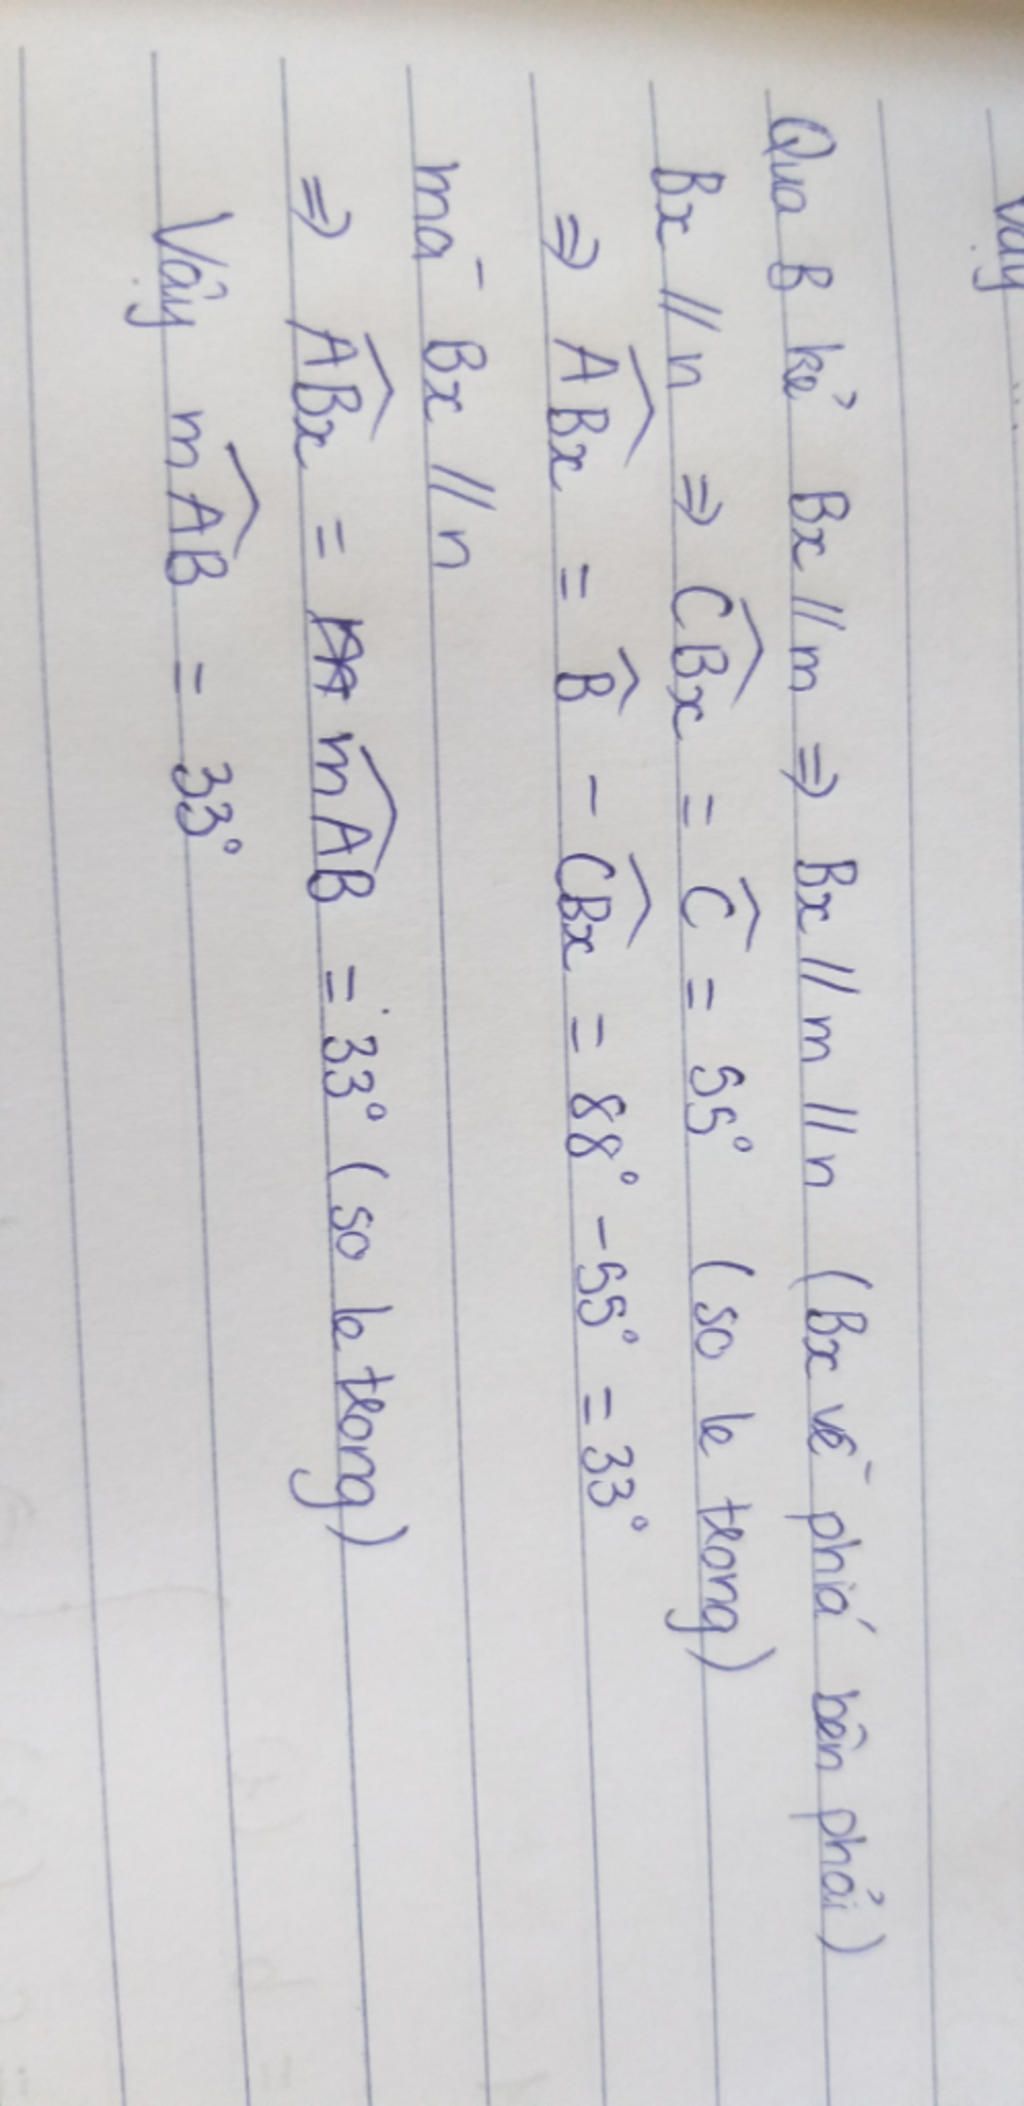 Vậy
Qua B kẻ Bx // m => Bx // m // n (Bx về phiá bên phải)
Bx // n => CBx = C = 55° (so le trong)
=> ABx = B - CBx = 88° - 55° = 33°
mà Bx // n
=> ABx = mAB = 33° (so le trong)
Vậy mAB = 33°